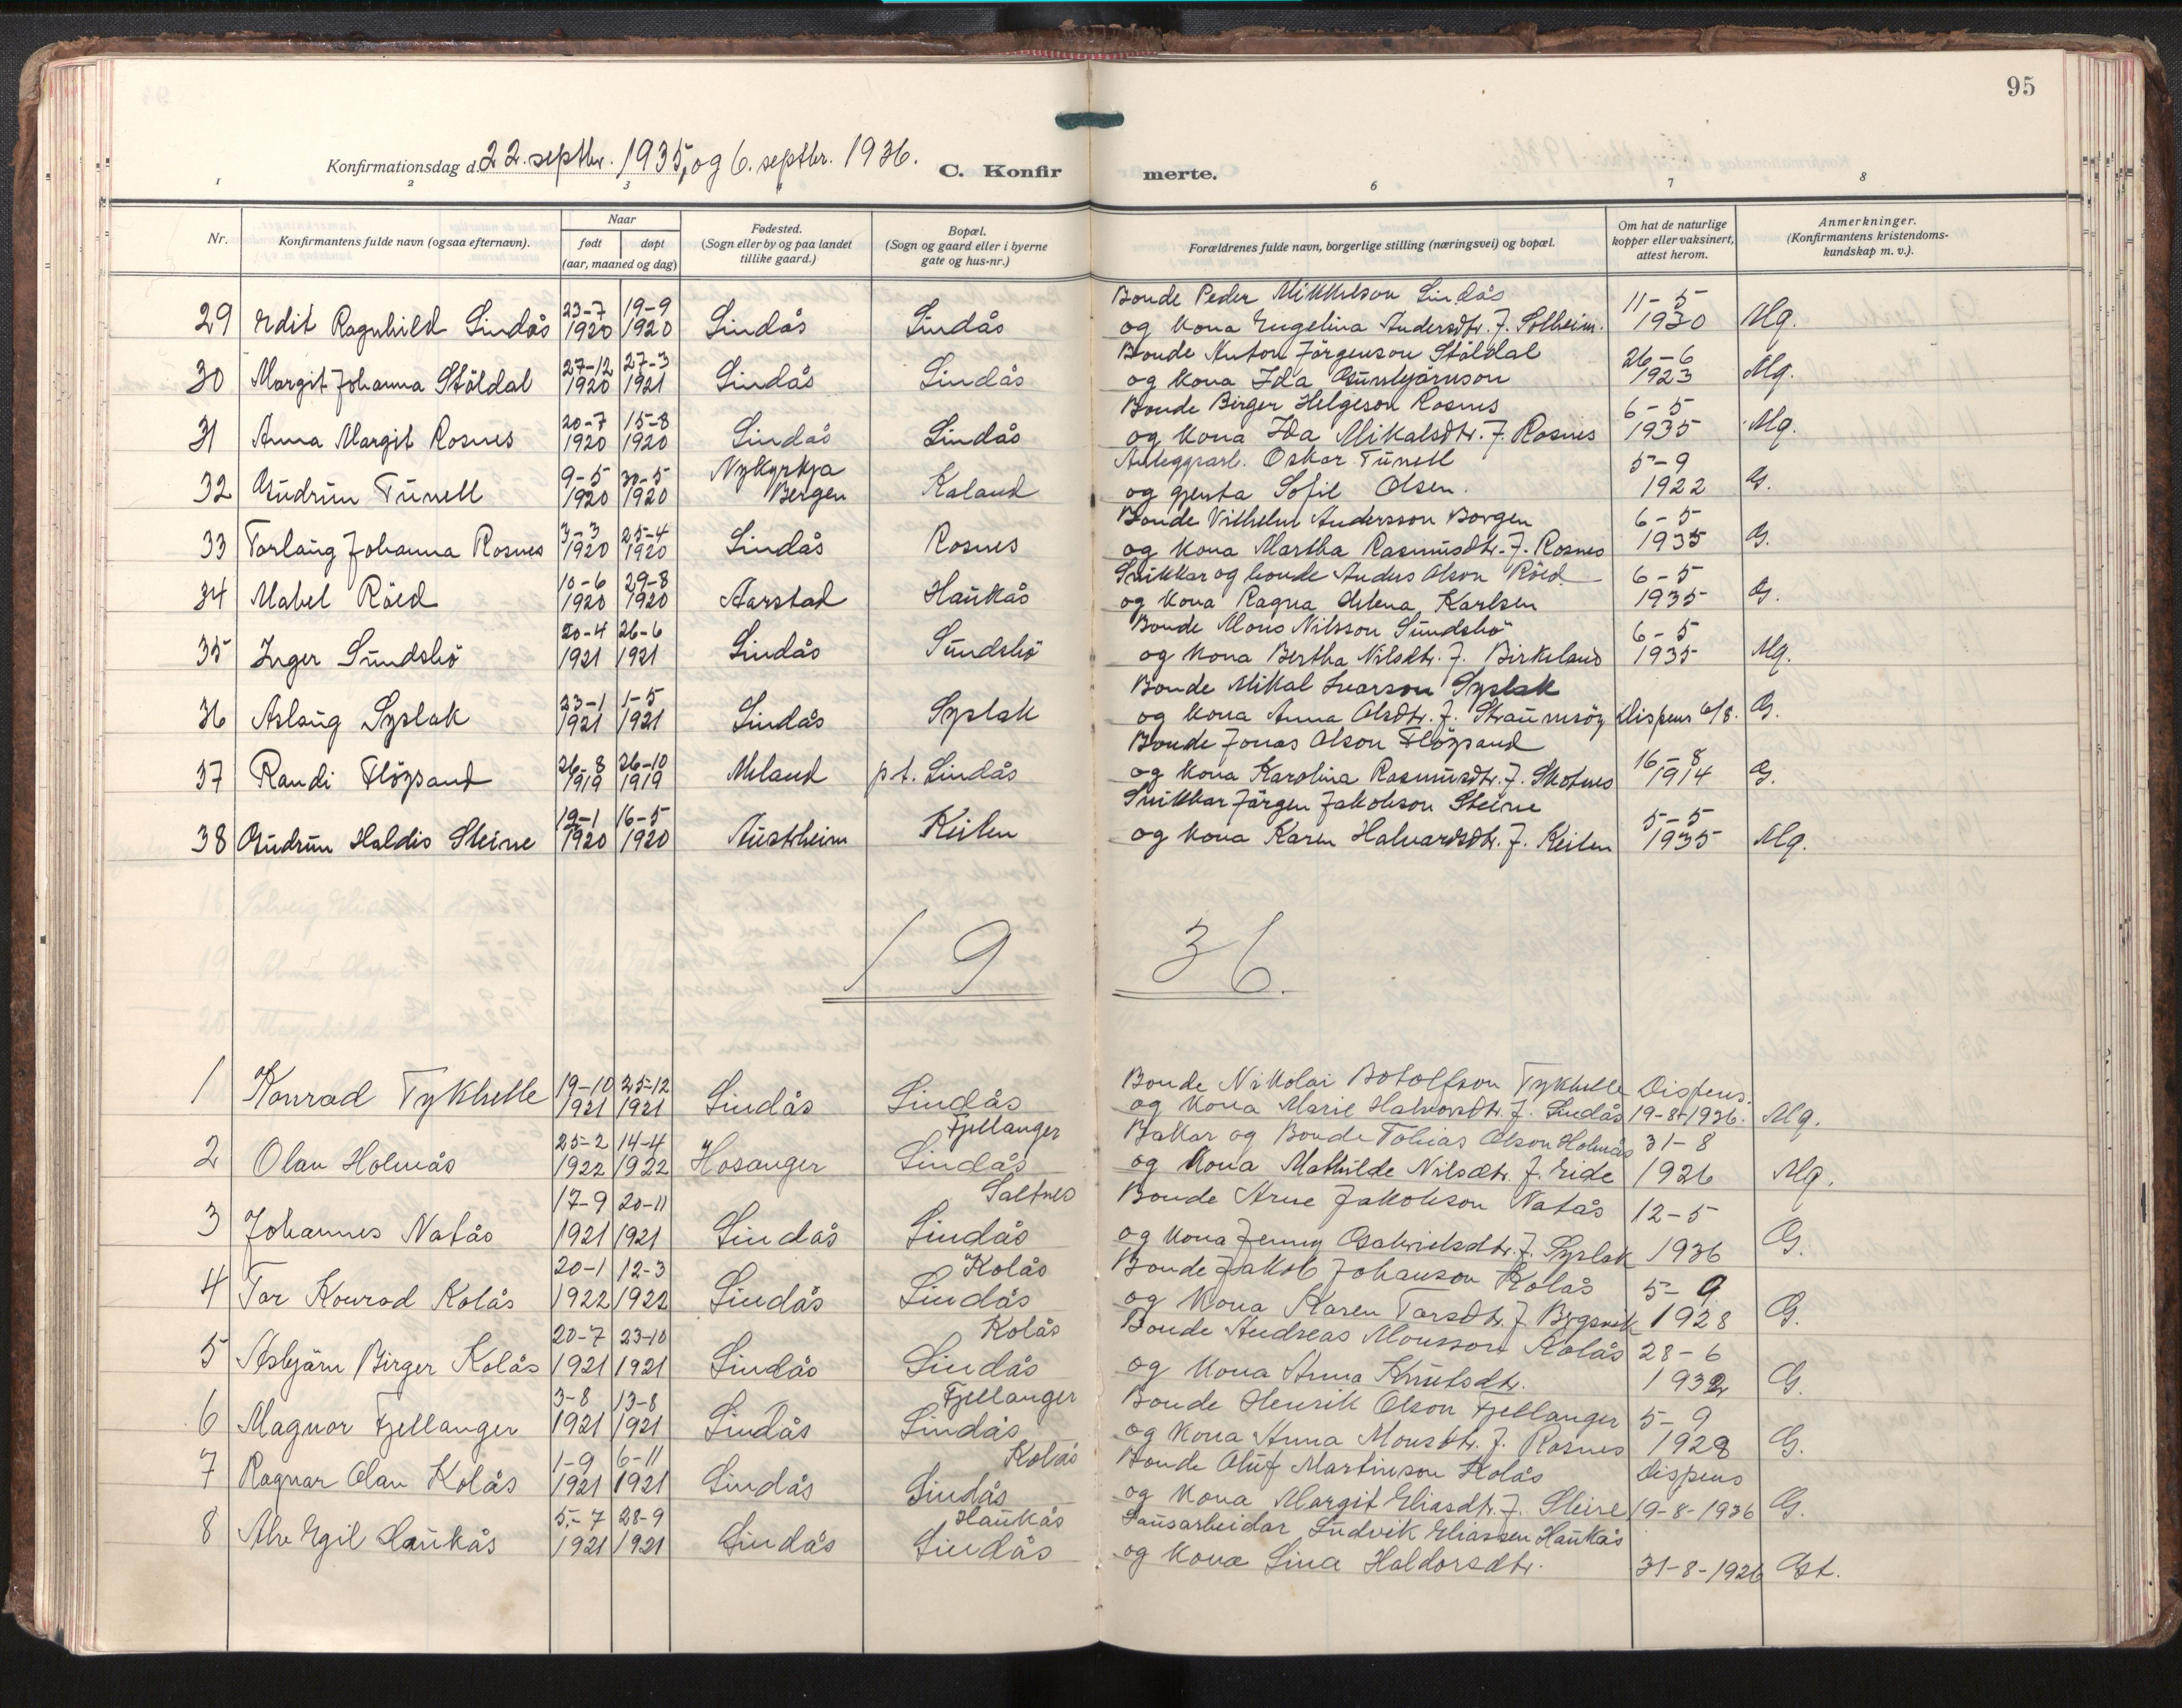 95
Konfirmationsdag d. 22. septbr. 1935, og 6. septbr. 1936. C. Konfirmerte.
1 2 3 6 7 8
Nr. Konfirmantens fulde navn (ogsaa efternavn). Naar født døpt (aar, maaned og dag) Fødested. (Sogn eller by og paa landet tillike gaard.) Bopæl. (Sogn og gaard eller i byerne gate og hus-nr.) Forældrenes fulde navn, borgerlige stilling (næringsvei) og bopæl. Om hat de naturlige kopper eller vaksinert, attest herom. Anmerkninger. (Konfirmantens kristendoms-kundskap m. v.).
23-7 19-9 Bonde Peder Mikkelson Lindås 11-5
29 Edit Ragnhild Lindås 1920 1920 Lindås Lindås og kona Engelina Andersdtr. f. Solheim. 1930 Mg.
27-12 27-3 Bonde Anton Jørgenson Stöldal 26-6
30 Margit Johanna Stöldal 1920 1921 Lindås Lindås og kona Ida Gunbjørnson 1923 Mg.
20-7 15-8 Bonde Birger Helgeson Rosnes 6-5
31 Anna Margit Rosnes 1920 1920 Lindås Lindås og kona Ida Mikalsdtr. f. Rosnes 1935 Mg.
9-5 30-5 Nykyrkja Anleggsarb. Oskar Tunell 5-9
32 Gudrun Tunell 1920 1920 Bergen Kaland og gjenta Sofie Olsen. 1922 G.
3-3 25-4 Bonde Vilhelm Andersson Borgen 6-5
33 Torlaug Johanna Rosnes 1920 1920 Lindås Rosnes og kona Martha Rasmusdtr. f. Rosnes 1935 G.
10-6 29-8 Snikkar og bonde Anders Olson Röed 6-5
34 Mabel Röed 1920 1920 Aarstad Haukås og kona Ragna Helena Karlsen 1935 G.
20-4 26-6 Bonde Mons Nilsson Sundsbö 6-5
35 Inger Sundsbö 1921 1921 Lindås Sundsbö og kona Bertha Nilsdtr. f. Birkeland 1935 Mg.
23-1 1-5 Bonde Mikal Ivarson Syslak
36 Aslaug Syslak 1921 1921 Lindås Syslak og kona Anna Olsdtr. f. Straumsöy Dispens 6/8. G.
26-8 26-10 Bonde Jonas Olson Flöysand 16-8
37 Randi Flöysand 1919 1919 Meland p.t. Lindås og kona Karolina Rasmusdtr. f. Skotnes 1914 G.
19-1 16-5 Snikkar Jørgen Jakobson Steine 5-5
38 Gudrun Haldis Steine 1920 1920 Austrheim Keilen og kona Karen Halvardsdtr. f. Keilen 1935 Mg.
19 36.
19-10 25-12 Bonde Nikolai Botolfson Tykhelle Dispens.
1 Konrad Tykhelle 1921 1921 Lindås Lindås og kona Marie Halvorsdtr. f. Lindås 19-8-1936. Mg.
25-2 14-4 Fjellanger Bakar og Bonde Tobias Olson Holmås 31-8
2 Olav Holmås 1922 1922 Hosanger Lindås og kona Mathilde Nilsdtr. f. Eide 1926 Mg.
17-9 20-11 Saltnes Bonde Arne Jakobson Natås 12-5
3 Johannes Natås 1921 1921 Lindås Lindås og kona Jenny Gabrielsdtr. f. Syslak 1936 G.
20-1 12-3 Kolås Bonde Jakob Johanson Kolås 5-9
4 Tor Konrad Kolås 1922 1922 Lindås Lindås og kona Karen Torsdtr. f. Bygnvik 1928 G.
20-7 23-10 Kolås Bonde Andreas Monsson Kolås 28-6
5 Asbjørn Birger Kolås 1921 1921 Lindås Lindås og kona Anna Knutsdtr. 1932 G.
3-8 13-8 Fjellanger Bonde Henrik Olson Fjellanger 5-9
6 Magnor Fjellanger 1921 1921 Lindås Lindås og kona Anna Monsdtr. f. Rosnes 1928 G.
1-9 6-11 Kolås Bonde Oluf Martinson Kolås Dispens
7 Ragnar Olav Kolås 1921 1921 Lindås Lindås og kona Margit Eliasdtr. f. Steire 19-8-1936 G.
5-7 28-9 Haukås Sausarbeidar Ludvik Eliassen Haukås
8 Alv Egil Haukås 1921 1921 Lindås Lindås og kona Lina Haldorsdtr. 31-8-1926 Gt.